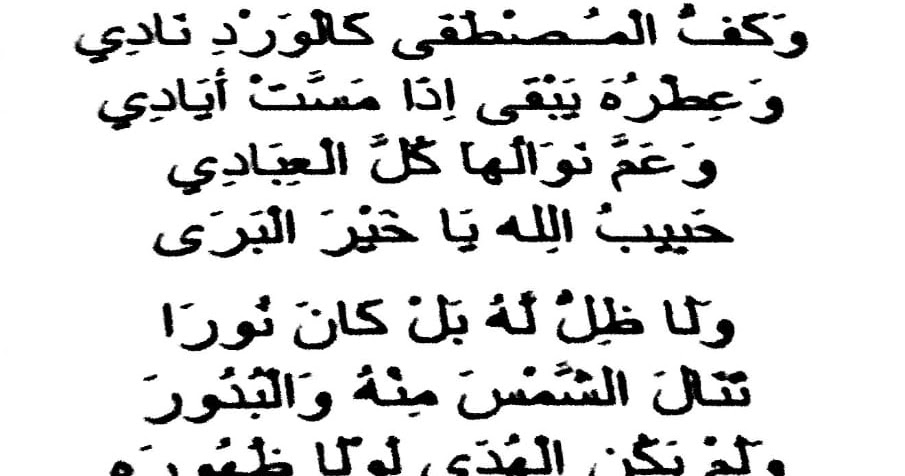 وَكَفُّ الْمُصْطَفَى كَالْوَرْدِ نَادِي
وَعِطْرُهَ يَبْقَى إِذَا مَسَّتْ أَيَادِي
وَعَمَّ نَوَالُهَا كُلَّ الْعِبَادِي
حَبِيبُ اللِه يَا خَيْرَ الْبَرَى
وَلَا ظِلُّ لَّهُ بَلْ كَانَ نُورَا
تَنَالَ الشَّمْسَ مِنْهُ وَالْبُدُورَ
وَلَمْ يَكُنِ الْهُدَى لَوْلَا ظُهُورَه